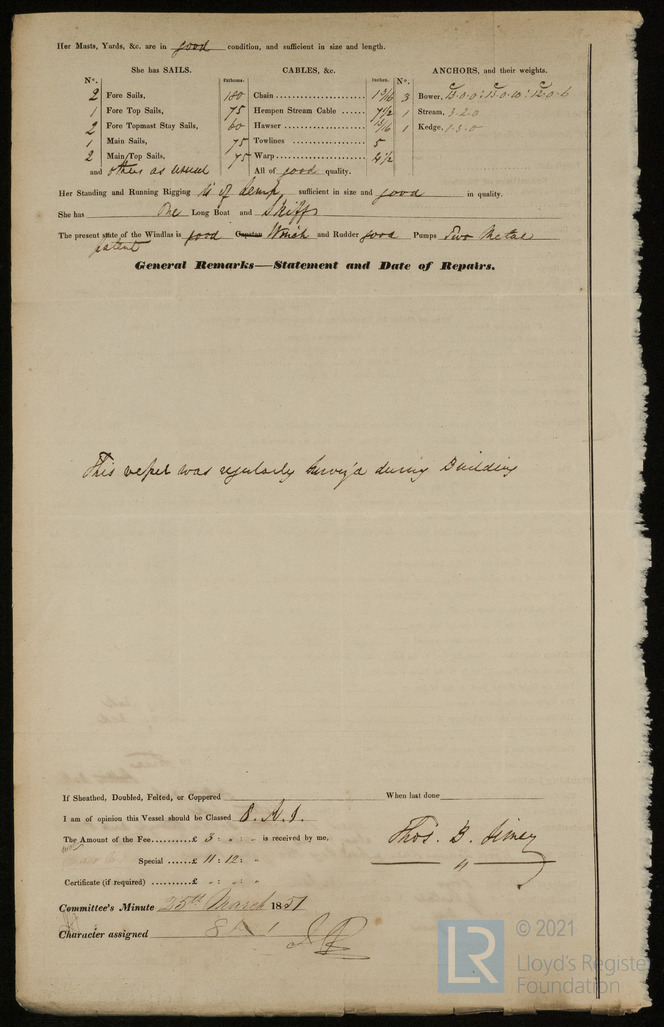 Her Masts, Yards, &c. are in good condition, and sufficient in size and length.
She has SAILS. CABLES, &c. ANCHORS, and their weights.
N°. Fathoms. Inches. N°.
2 Fore Sails, 180 Chain 1 3/16 3 Bower, 13.0.0 : 13.0.10 : 12.0.6
1 Fore Top Sails, 75 Hempen Stream Cable 7 1/2 1 Stream, 3.2.0
2 Fore Topmast Stay Sails, 60 Hawser 13/16 1 Kedge, 1.3.0
1 Main Sails, 75 Towlines 5
2 Main Top Sails, 75 Warp 4 1/2
and others as usual All of good quality.
Her Standing and Running Rigging is of hemp, sufficient in size and good in quality.
She has One Long Boat and Skiff
The present state of the Windlas is good Capstan Winch and Rudder good Pumps Two Metal
patent
General Remarks—Statement and Date of Repairs.
This vessel was regularly Survey'd during Building
If Sheathed, Doubled, Felted, or Coppered When last done
I am of opinion this Vessel should be Classed 8. A. 1.
The Amount of the Fee £ 3 : " : " is received by me,
Thos. B. Simey
Special £ 11 : 12 : "
Certificate (if required) £ " : " : "
Committee's Minute 25th March 1851
Character assigned 8 A 1
© 2021
LR
Lloyd's Registe
Foundation